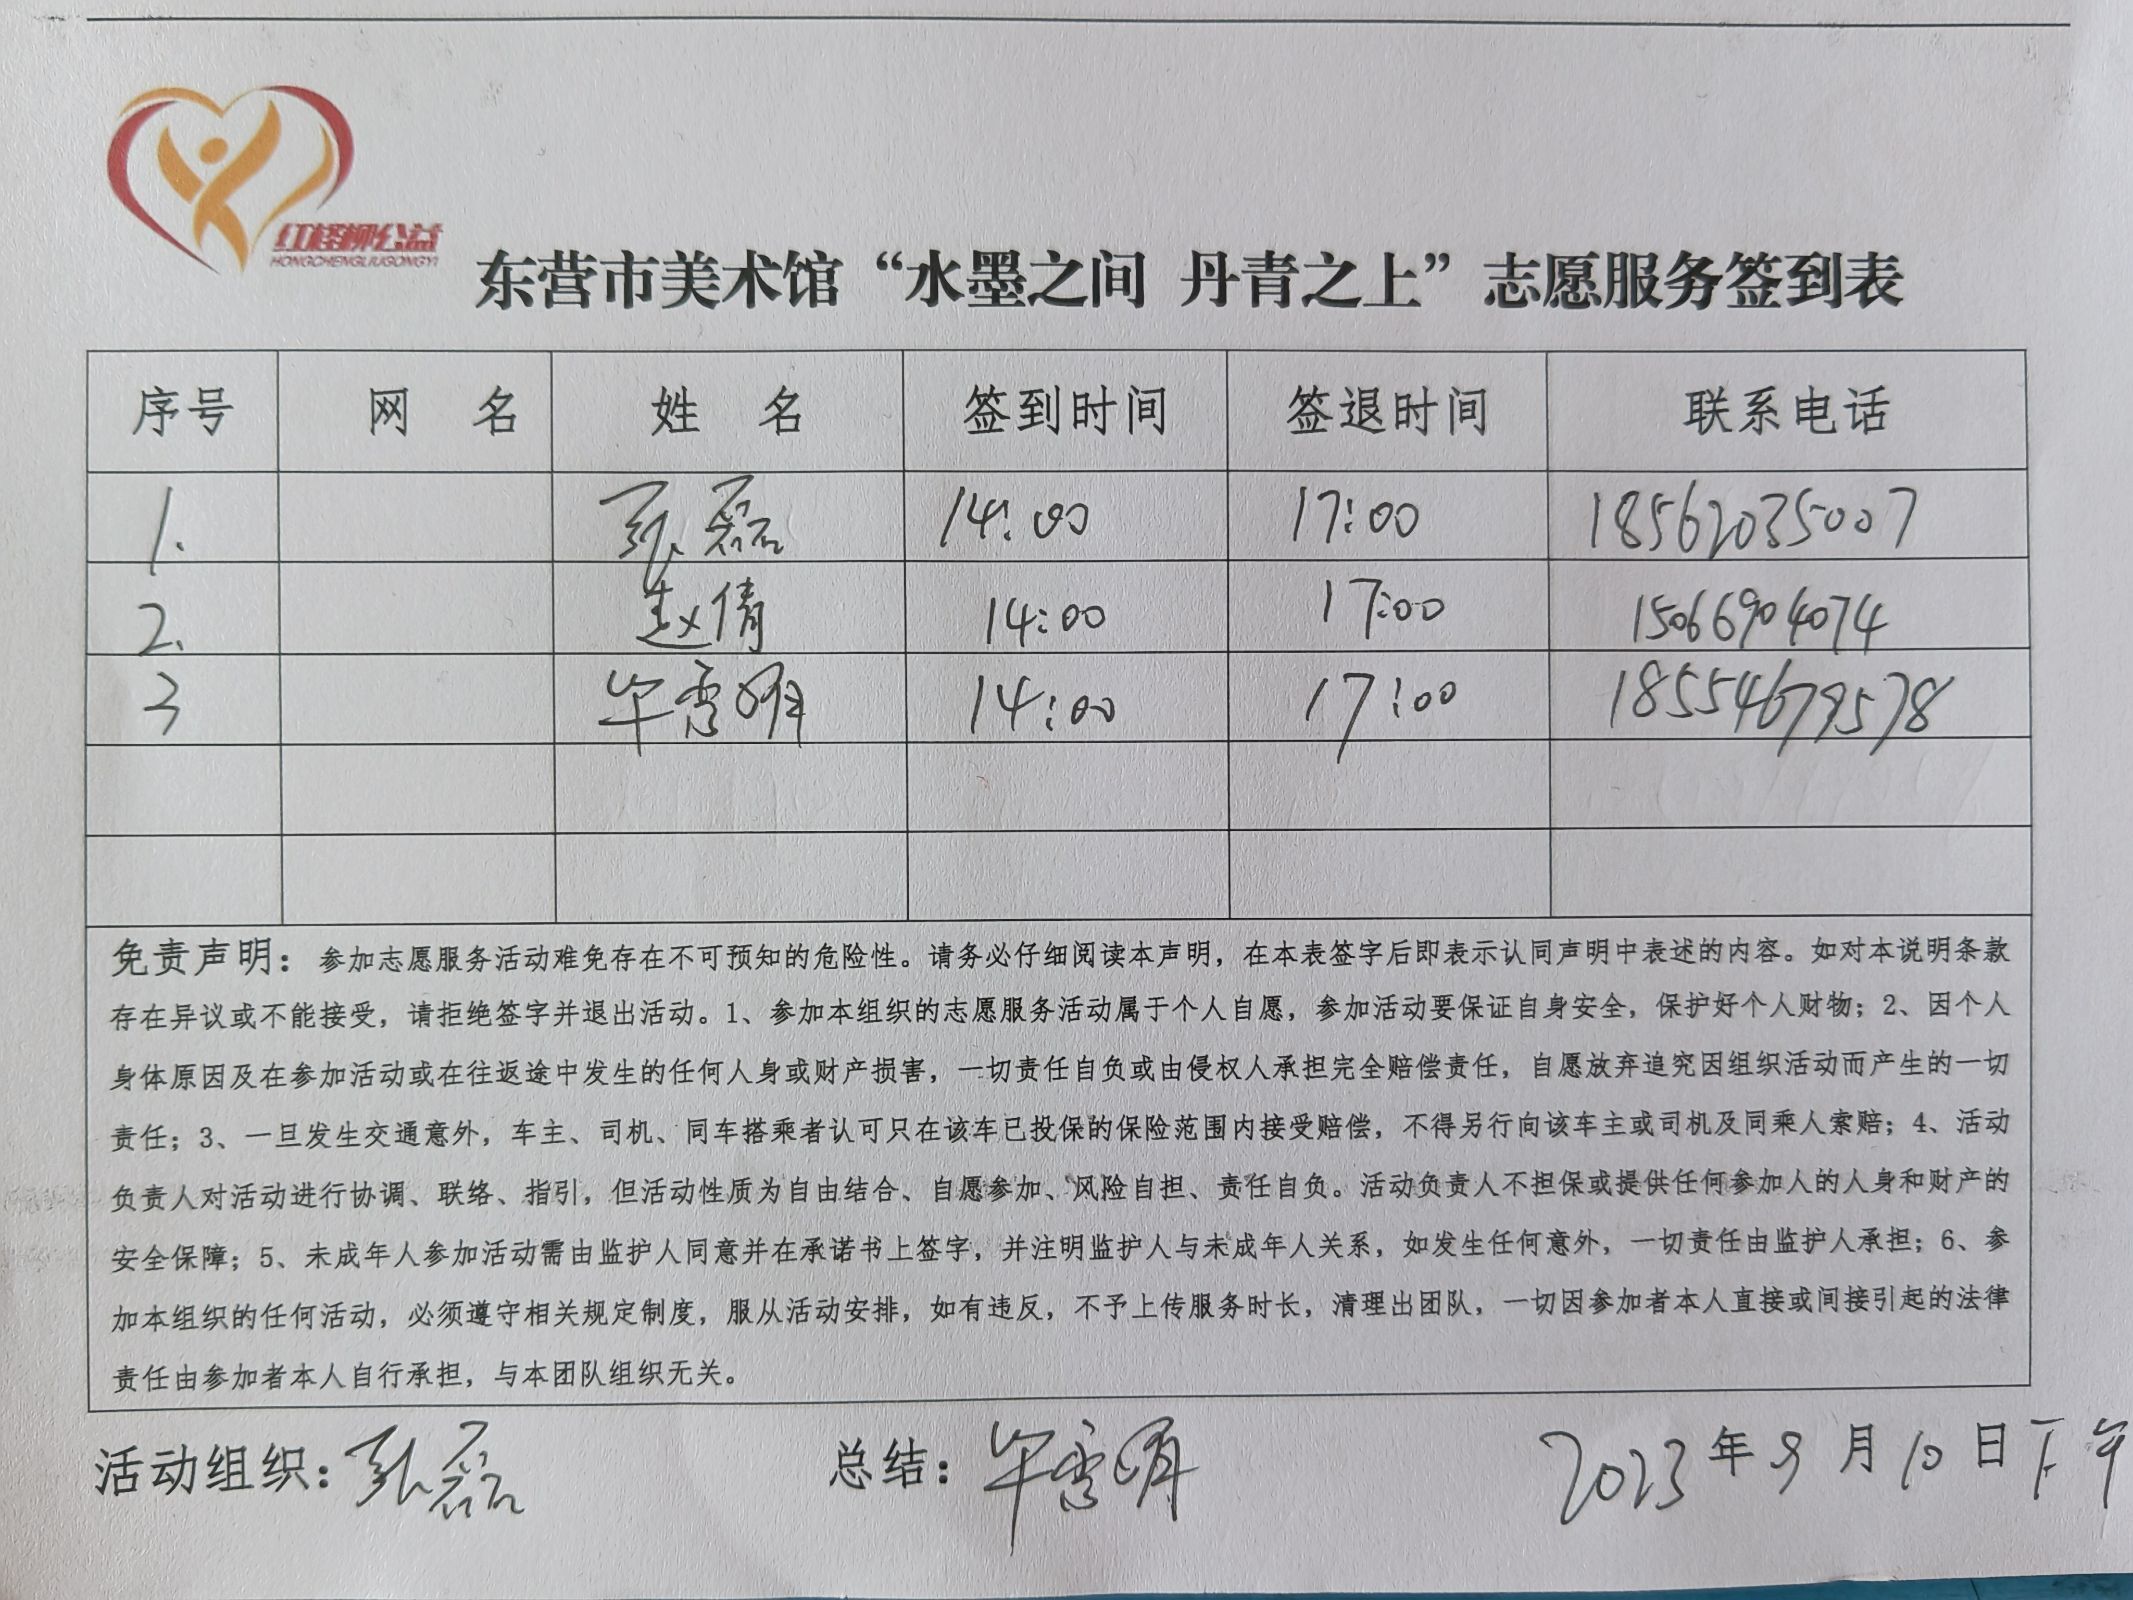 红柽柳公益
HONGCHENGLIUGONGYI
东营市美术馆“水墨之间 丹青之上”志愿服务签到表
序号 网 名 姓 名 签到时间 签退时间 联系电话
1. 张磊 14:00 17:00 18562035007
2. 赵倩 14:00 17:00 15066904074
3 14:00 17:00 18554679578
免责声明：参加志愿服务活动难免存在不可预知的危险性。请务必仔细阅读本声明，在本表签字后即表示认同声明中表述的内容。如对本说明条款
存在异议或不能接受，请拒绝签字并退出活动。1、参加本组织的志愿服务活动属于个人自愿，参加活动要保证自身安全，保护好个人财物；2、因个人
身体原因及在参加活动或在往返途中发生的任何人身或财产损害，一切责任自负或由侵权人承担完全赔偿责任，自愿放弃追究因组织活动而产生的一切
责任；3、一旦发生交通意外，车主、司机、同车搭乘者认可只在该车已投保的保险范围内接受赔偿，不得另行向该车主或司机及同乘人索赔；4、活动
负责人对活动进行协调、联络、指引，但活动性质为自由结合、自愿参加、风险自担、责任自负。活动负责人不担保或提供任何参加人的人身和财产的
安全保障；5、未成年人参加活动需由监护人同意并在承诺书上签字，并注明监护人与未成年人关系，如发生任何意外，一切责任由监护人承担；6、参
加本组织的任何活动，必须遵守相关规定制度，服从活动安排，如有违反，不予上传服务时长，清理出团队，一切因参加者本人直接或间接引起的法律
责任由参加者本人自行承担，与本团队组织无关。
活动组织：张磊 总结： 2023年9月10日下午